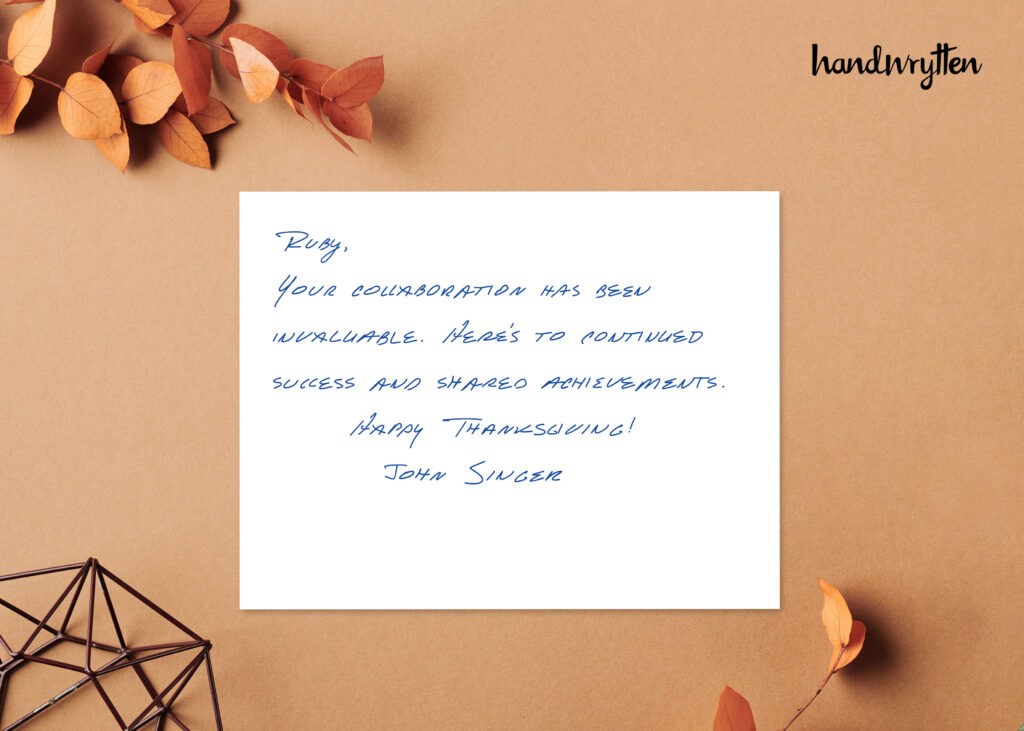 handwrytten
Ruby,
Your collaboration has been
invaluable. Here's to continued
success and shared achievements.
Happy Thanksgiving!
John Singer